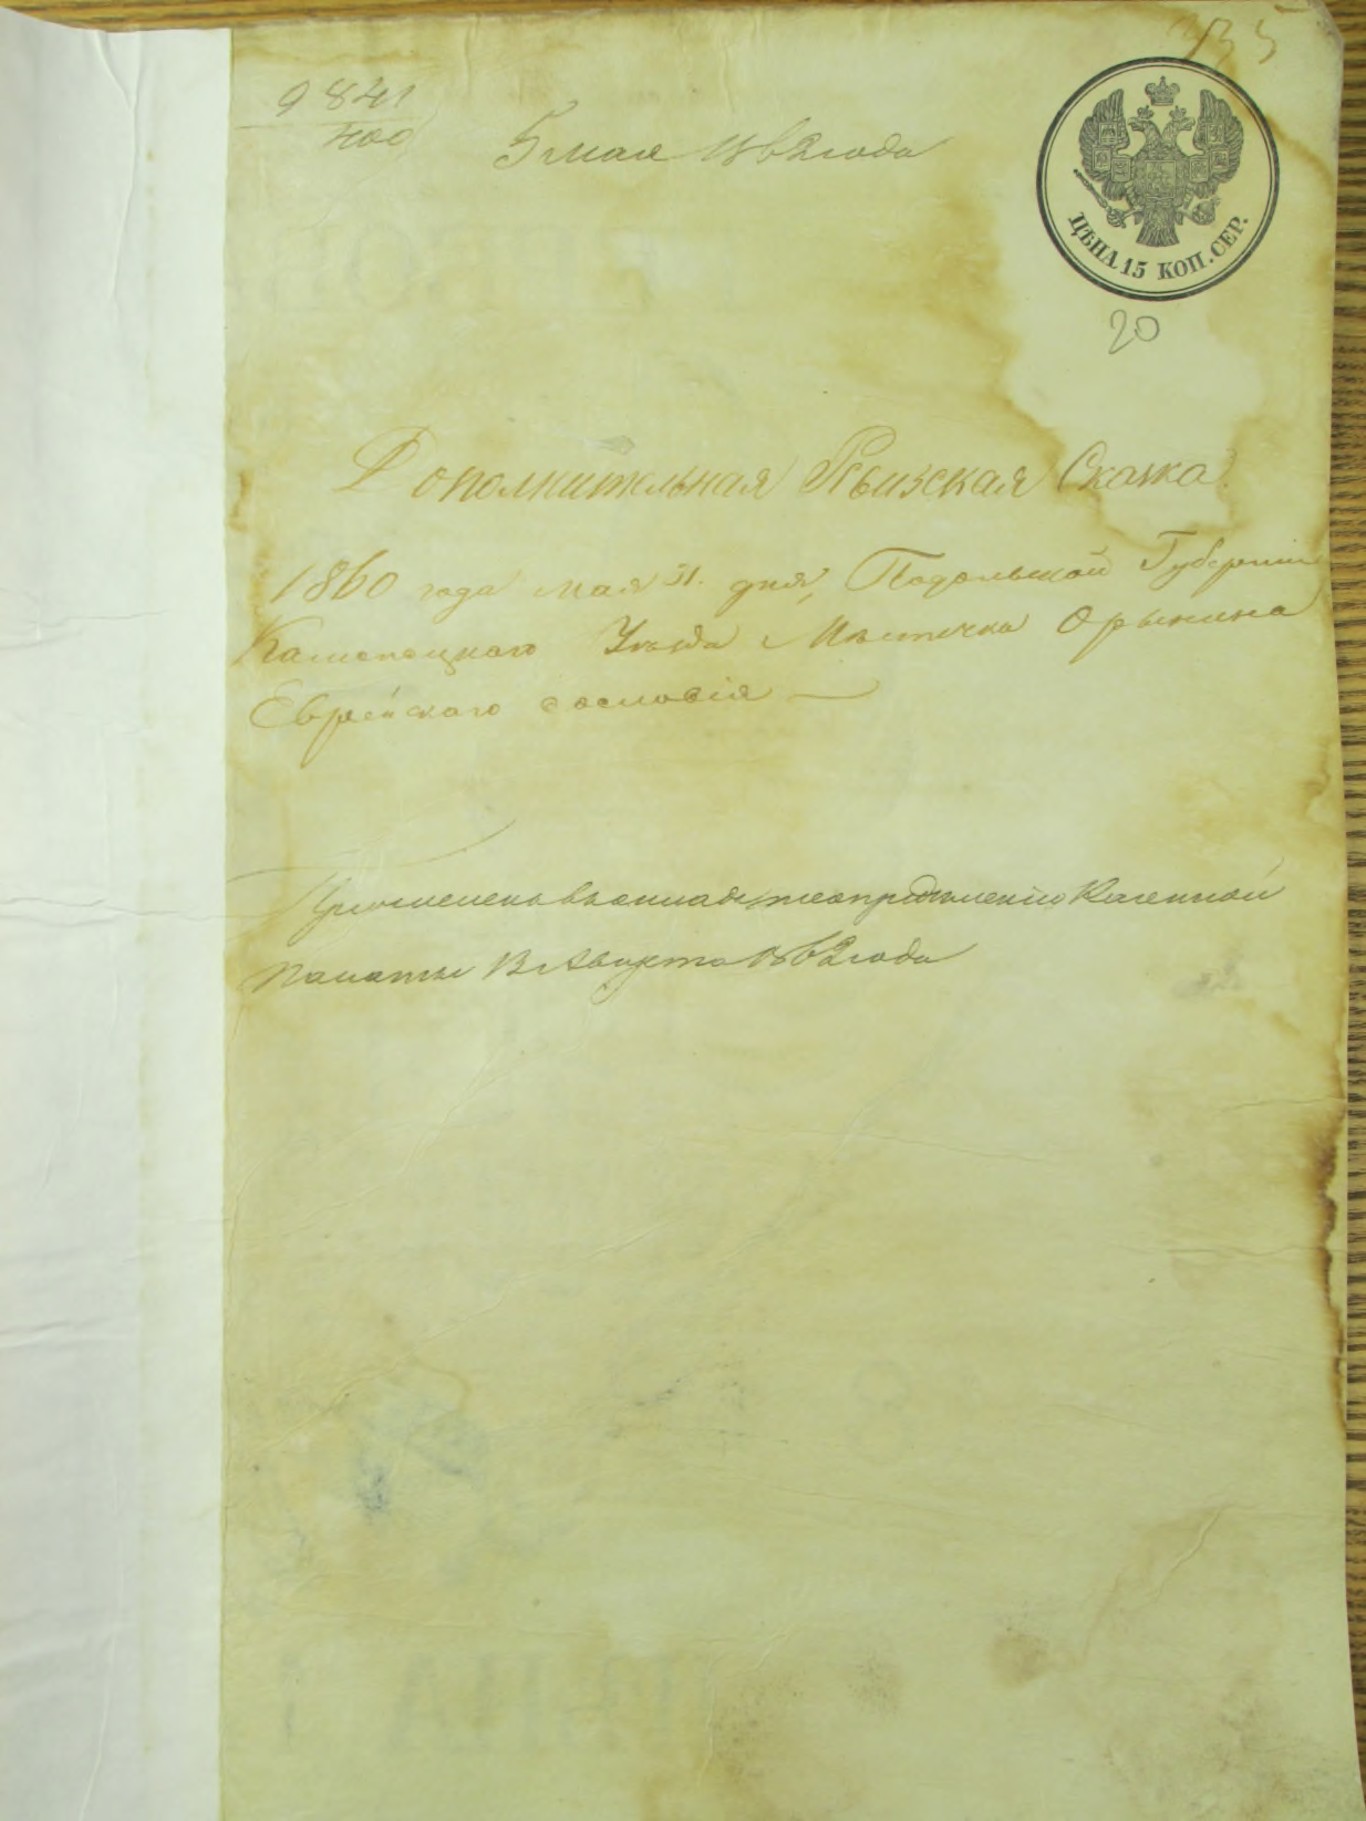 335
9841
400
5 мая 1862 года
ЦѢНА 15 КОП. СЕР.
20
Дополнительная Ревизская Сказка
1860 года мая 31. дня, Подольской Губерніи
Каменецкаго Уѣзда Мѣстечка Орынина
Еврейскаго сословія —
въ окладъ по опредѣленію Казенной
Палаты 13 Августа 1862 года